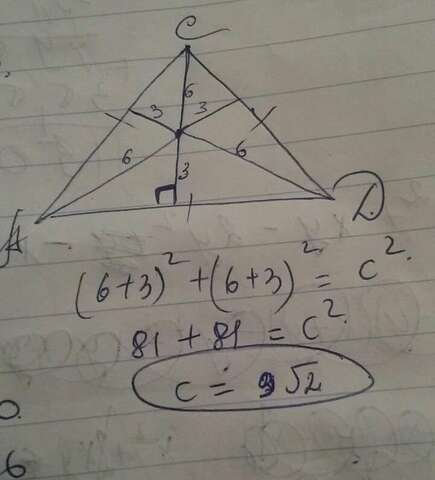 C
6
3 3
6 6
3
A D
(6+3)² + (6+3)² = c².
81 + 81 = c².
c = 9√2
0
6